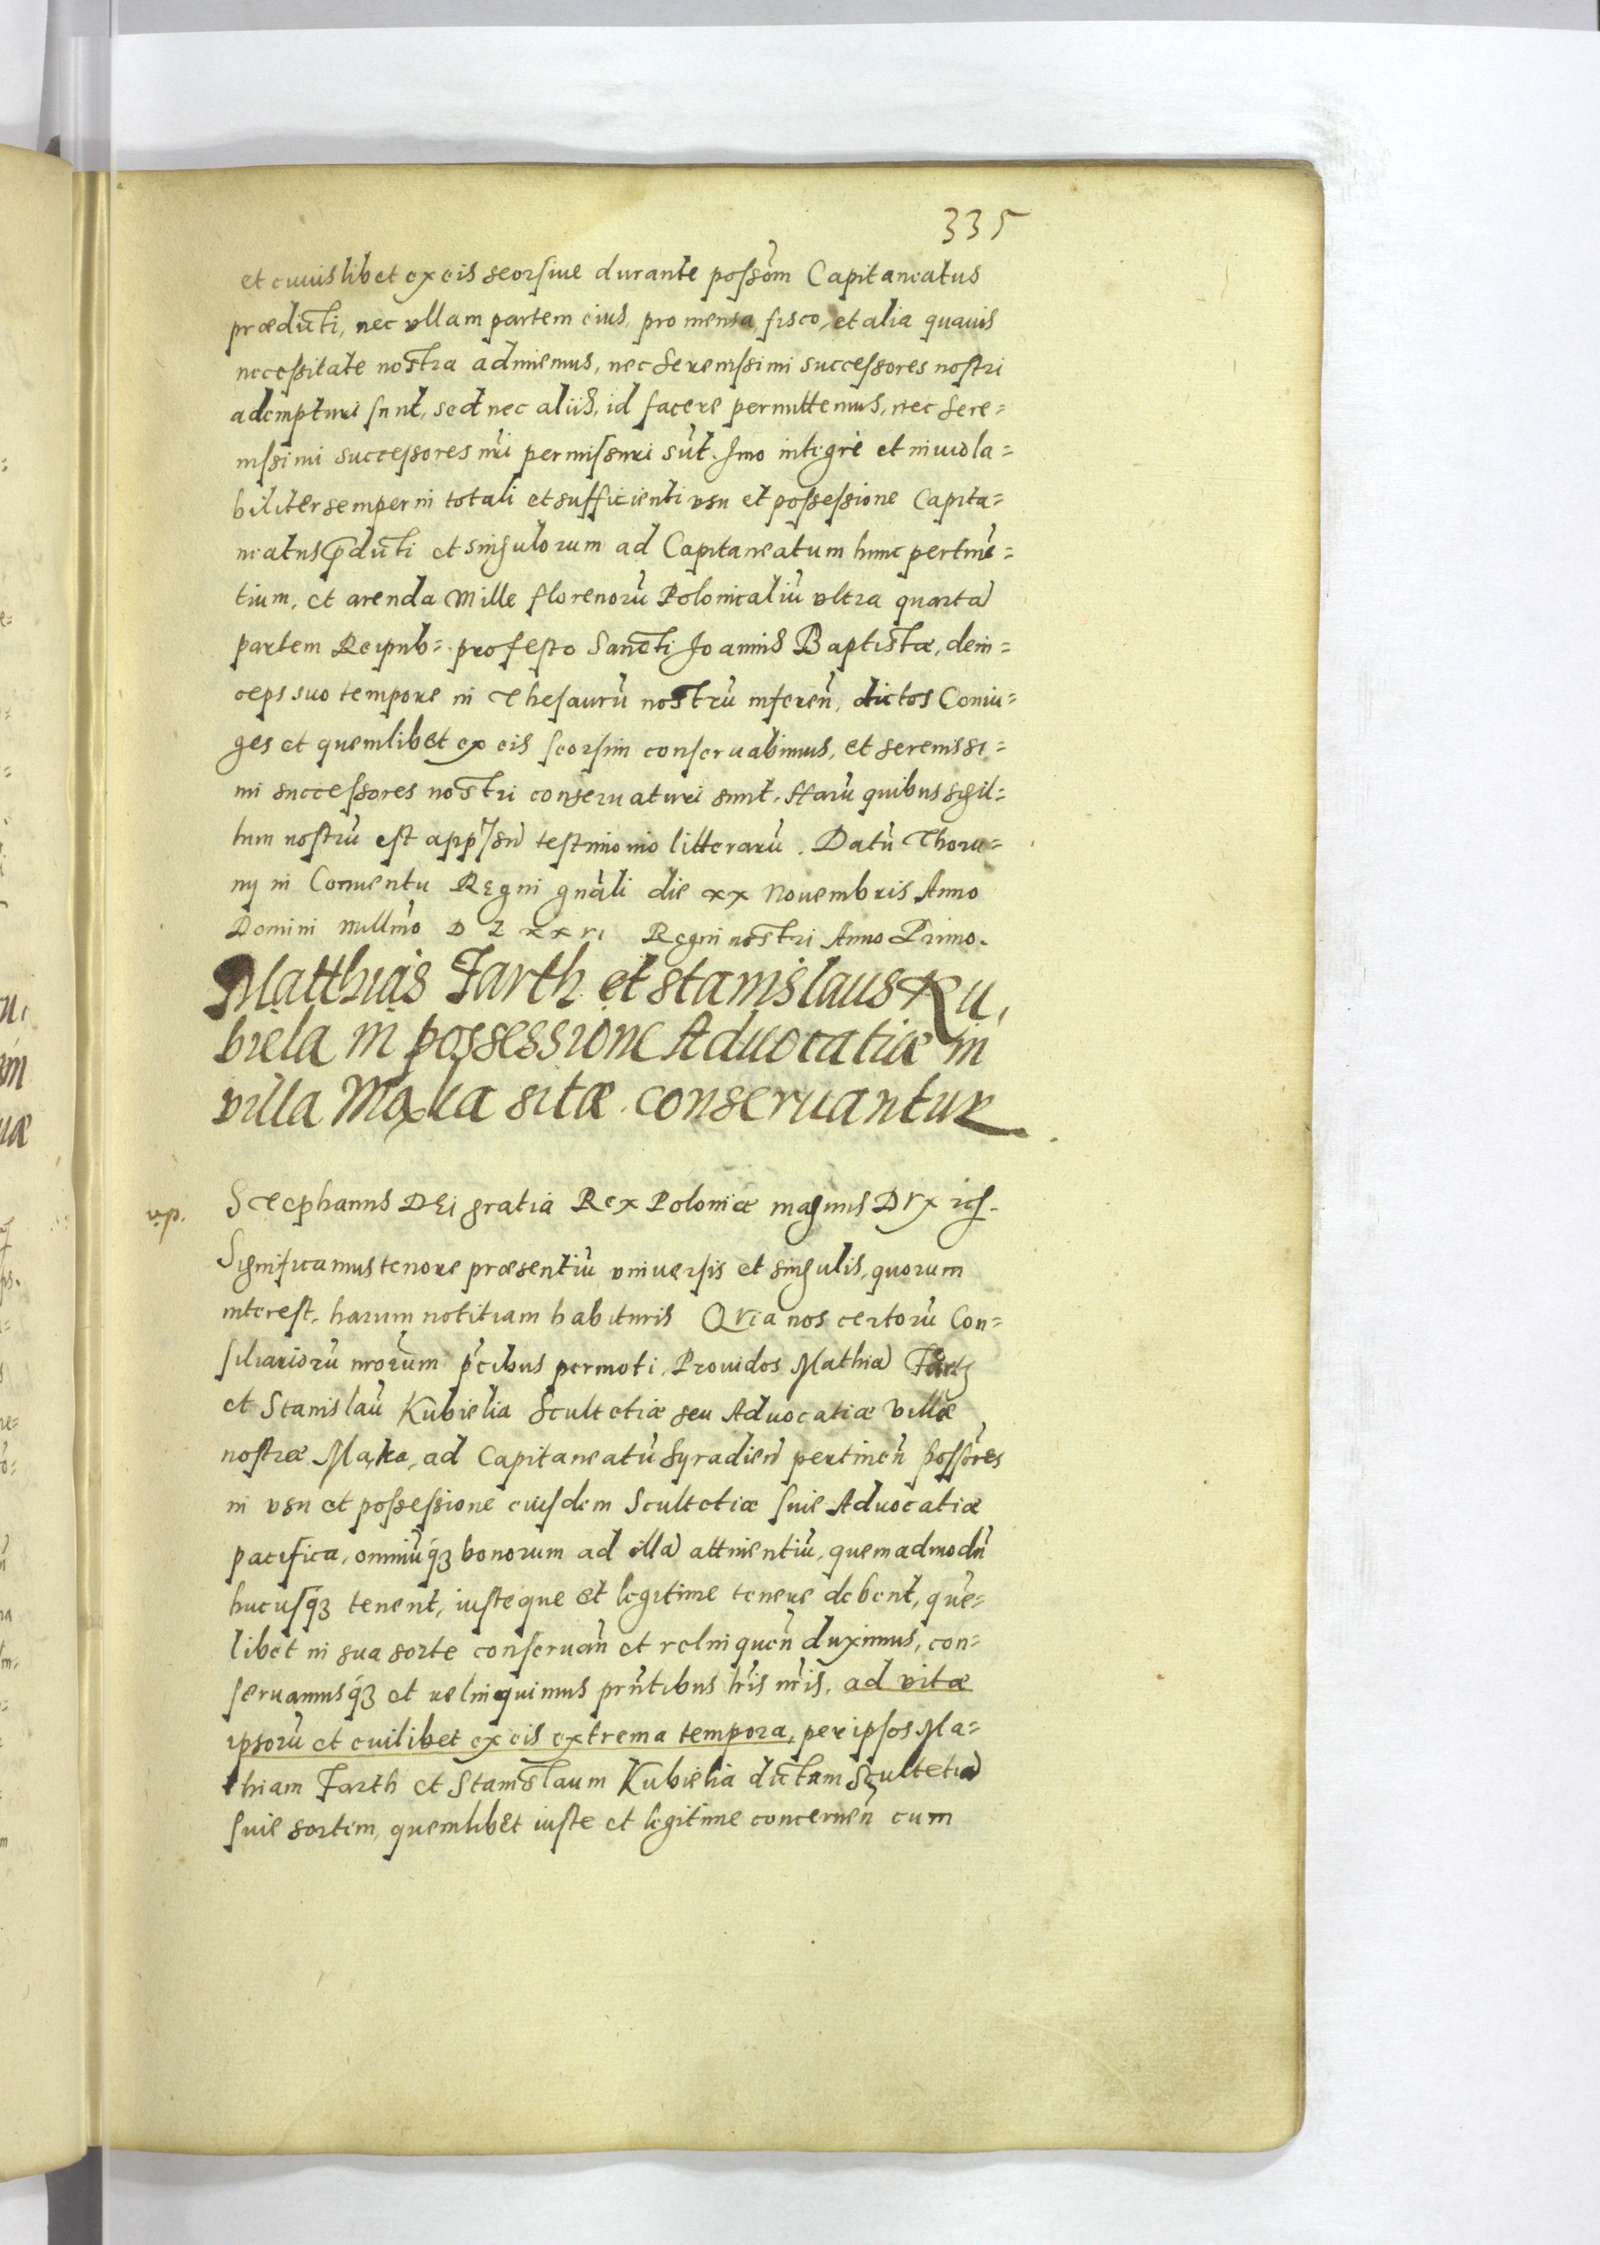 335
et cuiuslibet ex eis seorsiue durante possom̃ Capitaneatus
prædicti, nec vllam partem eius, pro mensa, fisco, et alia quauis
necessitate nostra adimemus, nec Serenissimi successores nostri
adempturi sunt, sed nec aliis, id facere permittemus, nec Sere=
nissimi successores nr̃i permissuri sũt. Imo integrè et inuiola=
biliter semper in totali et sufficienti vsu et possessione Capita=
neatus p̃dicti et singulorum ad Capitaneatum hunc pertinẽ=
tium, et arenda Mille florenorũ Polonicaliũ vltra quartã
partem Reipub= pro festo Sancti Joannis Baptistæ, dein=
ceps suo tempore in Thesaurũ nostrũ inferen̄, dictos Coniu=
ges et quemlibet ex eis seorsim conseruabimus, et serenissi=
mi successores nostri conseruaturi sunt. Harũ quibus sigil=
lum nostrũ est app̃sũ testimonio litterarũ. Datũ Thoru=
nij in Conuentu Regni gñali die xx Nouembris Anno
Domini millm̃o D L xx vi Regni nostri Anno Primo.
Matthias Farth et Stanislaus Ku,
biela in possessione Aduocatiæ in
villa Mąka sitæ conseruantur
v.p.
Stephanus DEi gratia Rex Poloniæ magnus DVx
Significamus tenore præsentiũ vniuersis et singulis, quorum
interest, harum notitiam habituris QVia nos certorũ Con=
siliariorũ nrõrum p̃cibus permoti, Prouidos Mathiã Fart
et Stanislaũ Kubielia Scultetiæ seu Aduocatiæ Villæ
nostræ Mąka, ad Capitaneatũ Syradien̄ pertinen̄ possõres
in vsu et possessione eiusdem Scultetiæ siue Aduocatiæ
pacifica, omniũq́ꝫ bonorum ad illã attinentiũ, quemadmodũ
hucusq́ꝫ tenent, iusteque et legitime tenere debent, quẽ=
libet in sua sorte conseruan̄ et relinquen̄ duximus, con=
seruamusq́ꝫ et relinquimus prñtibus lr̃is nr̃is, ad vitæ
ipsorũ et cuilibet ex eis extrema tempora, per ipsos Ma=
thiam Farth et Stanislaum Kubielia dictam Scultetiã
siue sortem, quemlibet iuste et legitime concernen̄ cum